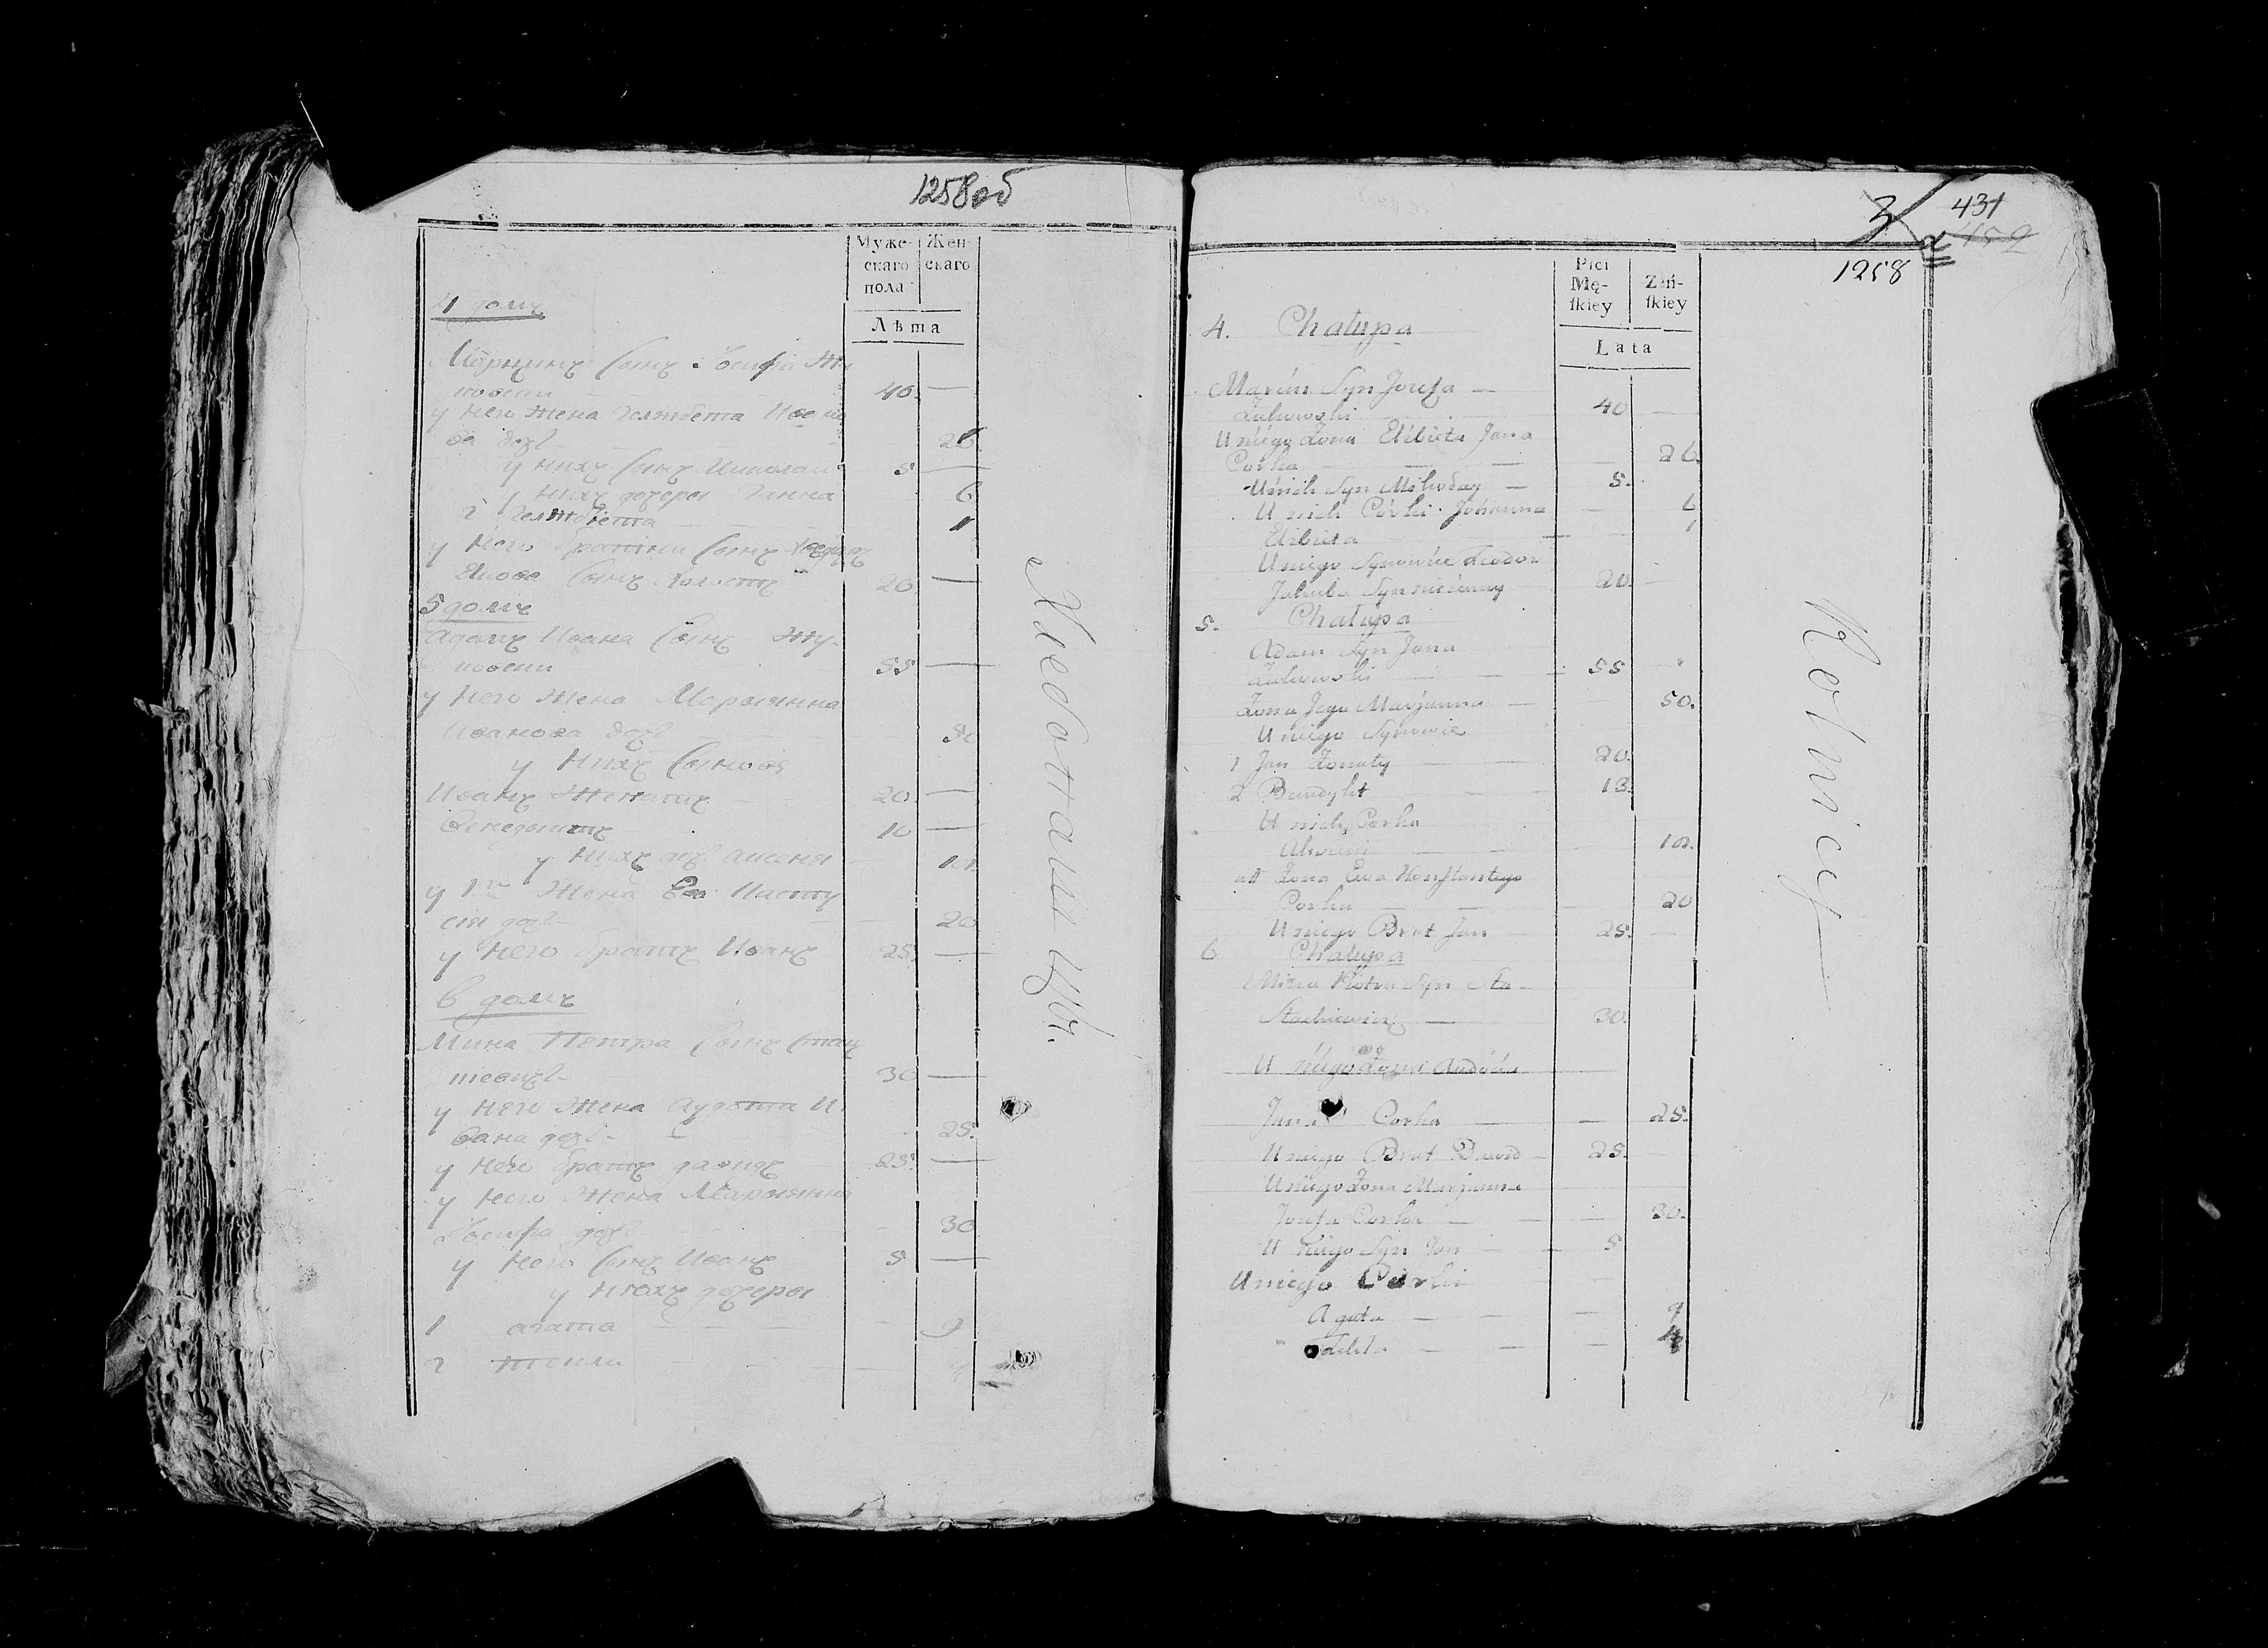 1258об
Муже- Жен-
скаго скаго
пола
Лѣта
4 домъ
Марцинъ Сынъ Іосифа Жу
ковски 40. —
у него жена Гелжбета Ивано
ва дочь 26.
у нихъ Сынъ Миколай 5 —
у нихъ дочеры Ганна 6
2 Гелжбета 1
у него братни Сынъ
Якова Сынъ холостъ 20 —
5 домъ
Адамъ Ивана Сынъ Жу-
ковски 55 —
у него жена Марыянна
Иванова дочь 50
у нихъ Сыновя
Иванъ женатъ 20 —
Бенедыктъ 10 —
у нихъ дочь
у 1го жена Ева
дочь 20
у него братъ Иванъ 25 —
6 домъ
Мина Петра Сынъ Стац
кевичъ 30 —
у него жена И
вана дочь 25.
у него братъ давидъ 25. —
у него жена Марыянна
Іосифа дочь 30
у него Сынъ Иванъ 5 —
у нихъ дочеры
1 агата 9
2 текля
Хлебопашцы.
3 431
159
1258
Płci
Mę- Żeń-
ſkiey ſkiey
Lata
4. Chałupa
Marcin Syn Jozefa —
Żukowski 40 —
U niego Żona Elżbieta Jana
Corka — 26.
U nich Syn Mikołay — 5.
U nich Córki Johanna — 6
Elżbieta — 1
U niego Synowiec Teodor
Jakuba Syn nieżenny 20. —
5. Chałupa
Adam Syn Jana
Żukowski — 55 —
Żona Jego Marjanna — 50.
U niego Synowie
1 Jan Żonaty — 20.
2 Benedykt — 13.
U nich Corka
Żona Ewa Konstantego
Corka — 20
U niego Brat Jan 25. —
6 Chałupa
Mina Piotra Syn Sta-
Stackiewicz — 30.
U niego Żona
Jana Corka — 25.
U niego Brat Dawid — 25.
U niego Żona Marjanna
Jozefa Corka — 30.
U niego Syn Jan — 5
U niego Córki
Agata — 9
Tekla — 4
Rolnicy